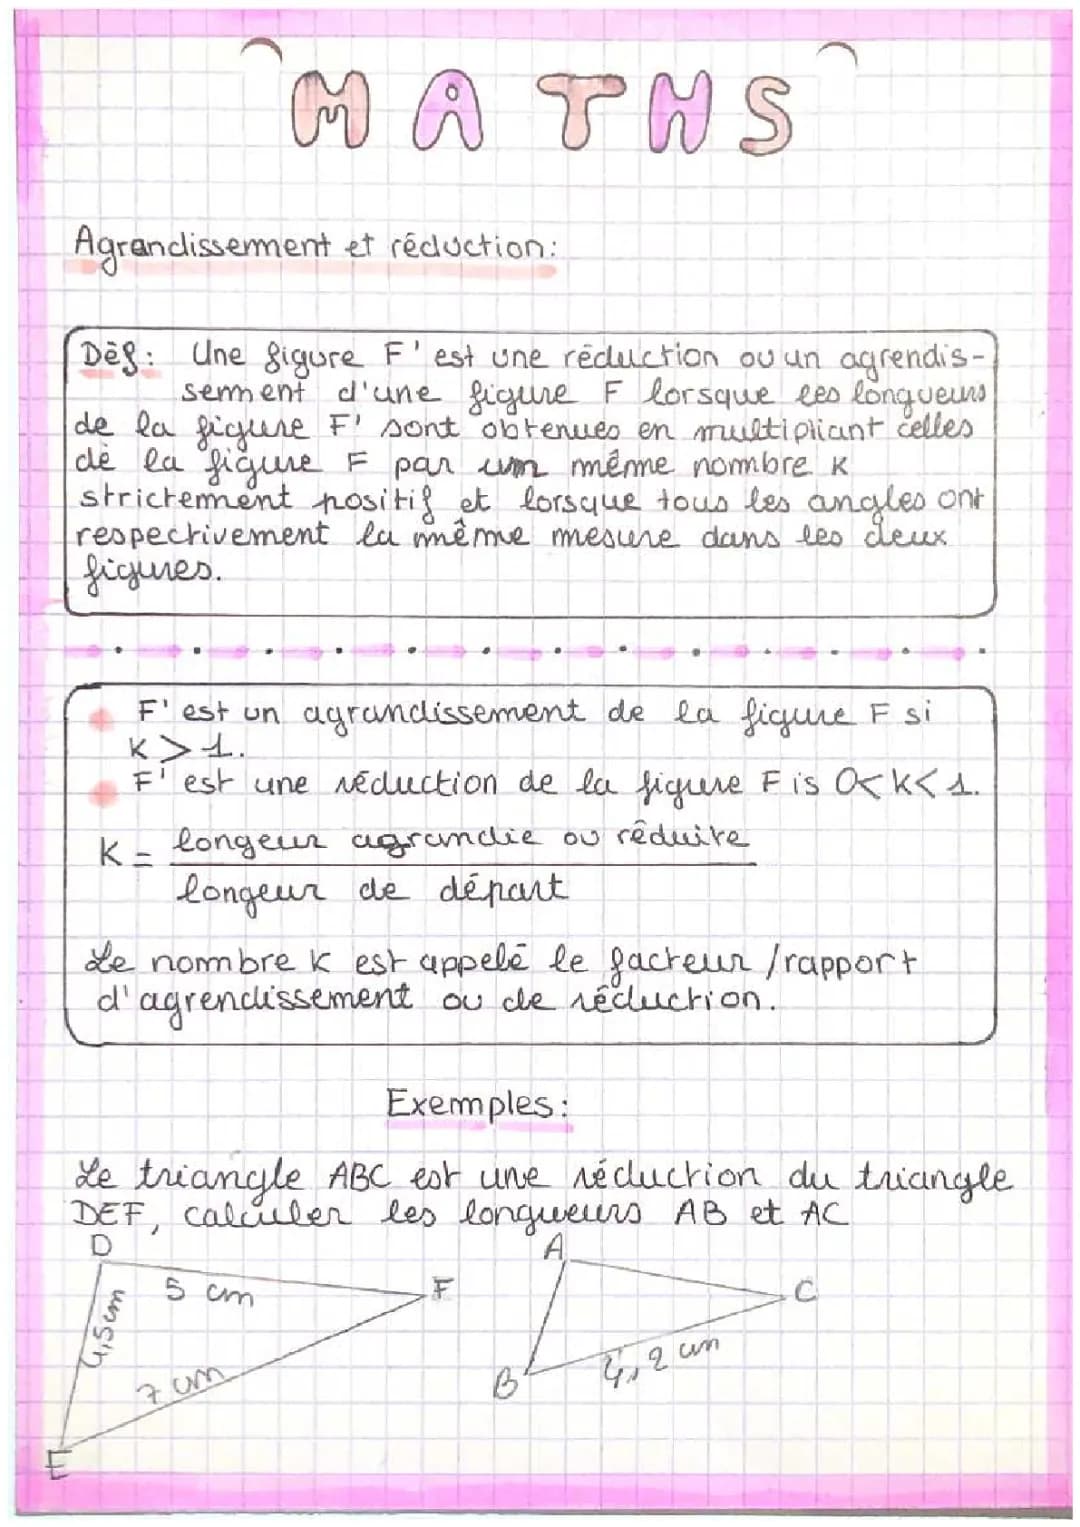 MATHS
Agrandissement et réduction:
Dèf: Une figure F' est une réduction ou un agrendis-
sement d'une figure F lorsque les longueurs
de la figure F' sont obtenues en multipliant celles
de la figure F par um même nombre K
strictement positif et lorsque tous les angles ont
respectivement la même mesure dans les deux
figures.
F' est un agrandissement de la figure F si
K > 1.
F' est une réduction de la figure F is 0< K< 1.
K = longeur agrandie ou réduite
longeur de départ
Le nombre K est appelé le facteur /rapport
d'agrendissement ou de réduction.
Exemples:
Le triangle ABC est une réduction du triangle
DEF, calculer les longueurs AB et AC
D
A
5 cm
F
C
4,5cm
4,2 cm
7 cm
B
E